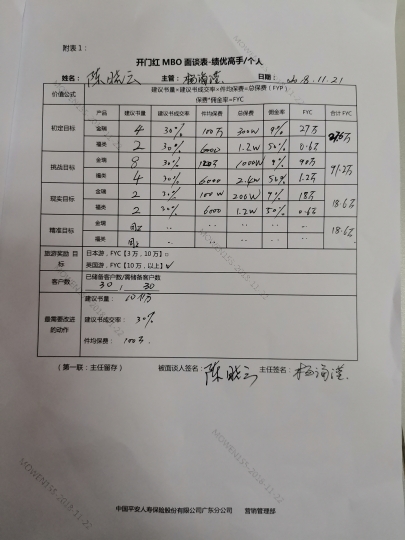 附表1：
开门红 MBO 面谈表-绩优高手/个人
姓名： 陈晓云 主管： 日期： 2018.11.21
价值公式 建议书量*建议书成交率*件均保费=总保费（FYP）
保费*佣金率=FYC
产品 建议书量 建议书成交率 件均保费 总保费 佣金率 FYC 合计 FYC
初定目标 金瑞 4 30% 100万 300W 9% 27万 27.6万
福类 2 30% 6000 1.2W 50% 0.6万
挑战目标 金瑞 8 30% 1000W 9% 90万 91.2万
福类 4 30% 6000 2.4W 50% 1.2万
现实目标 金瑞 2 30% 100W 200W 9% 18万 18.6万
福类 2 30% 6000 1.2W 50% 0.6万
精准目标 金瑞 同上 18.6万
福类 同上
旅游奖励 目标 日本游，FYC【3万，10万】□
英国游，FYC【10万，以上】✓
客户数 已储备客户数/需储备客户数
30 / 30
最需要改进的动作 建议书量：
建议书成交率： 30%
件均保费： 100万
（第一联：主任留存） 被面谈人签名： 陈晓云 主任签名：
中国平安人寿保险股份有限公司广东分公司 营销管理部